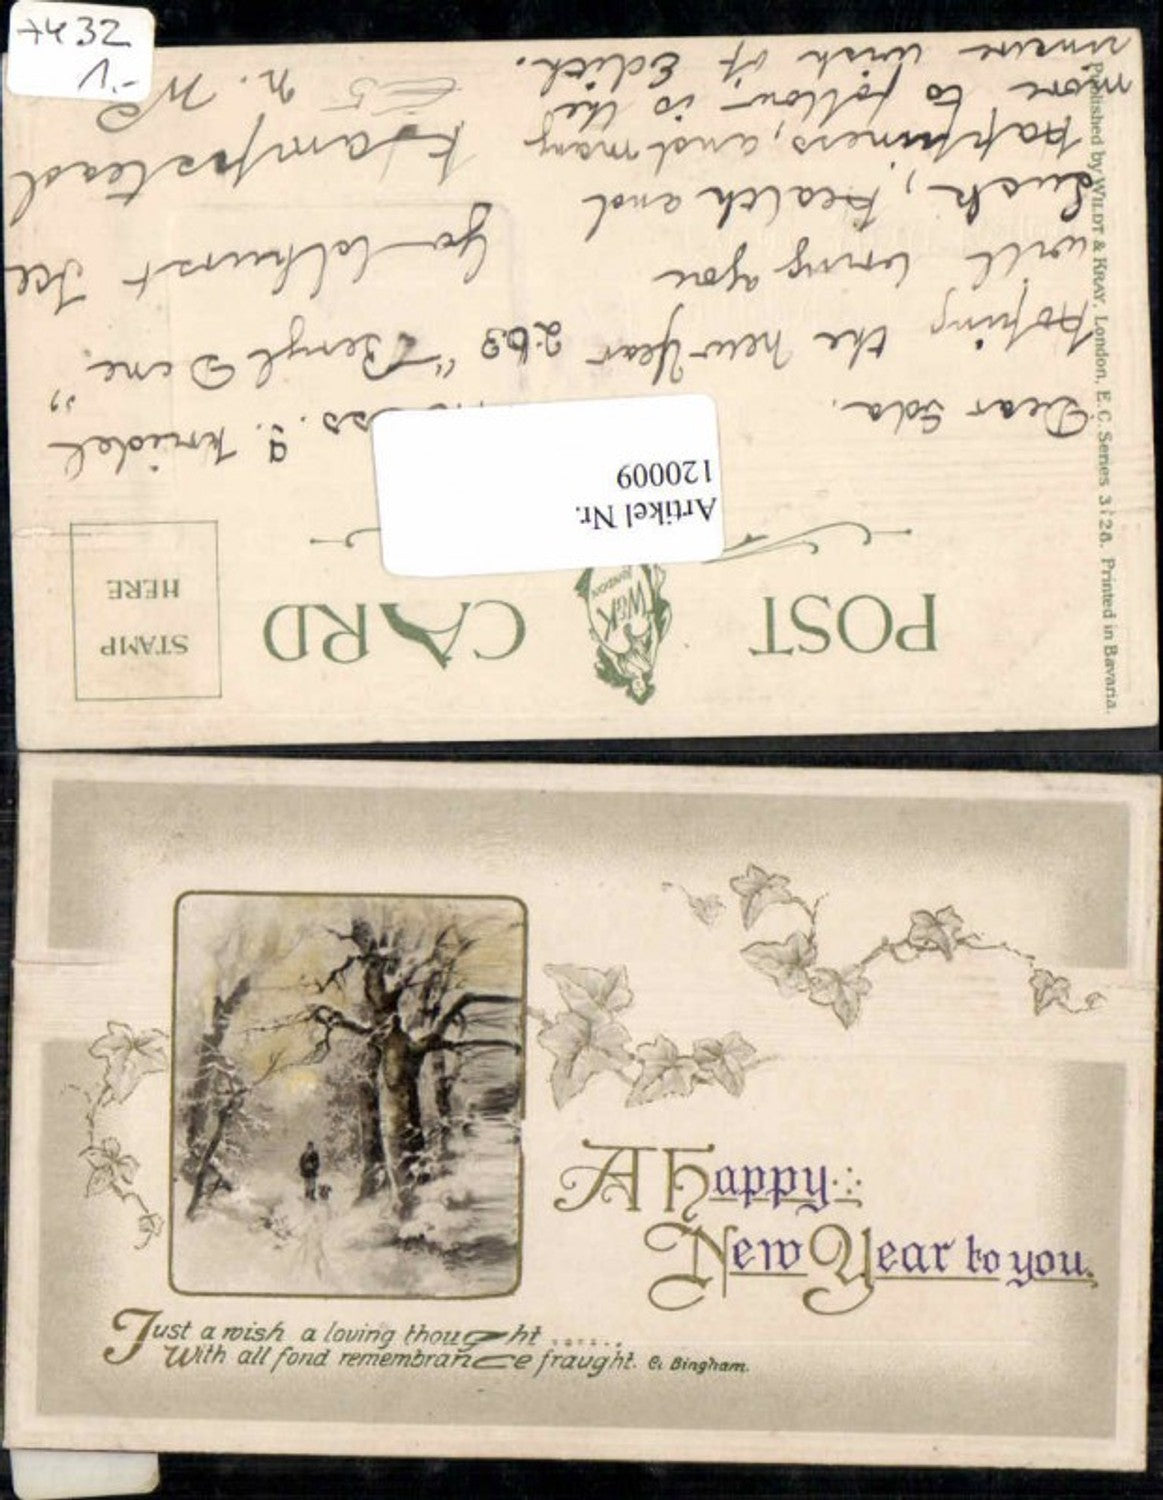 7432
1,-
POST CARD
W&K
LONDON
STAMP
HERE
Artikel Nr.
120009
Published by WILDT & KRAY, London, E.C. Series 3128. Printed in Bavaria.
Dear Ida.
Hoping the new Year
will bring you
Luck, Health and
Happiness, and many
more to follow is the
sincere wish of Edith.
"Beryl Dene"
263 Goldhurst Tce
Hampstead
N. W
A Happy
New Year to you.
Just a wish a loving thought ......
With all fond remembrance fraught. C. Bingham.